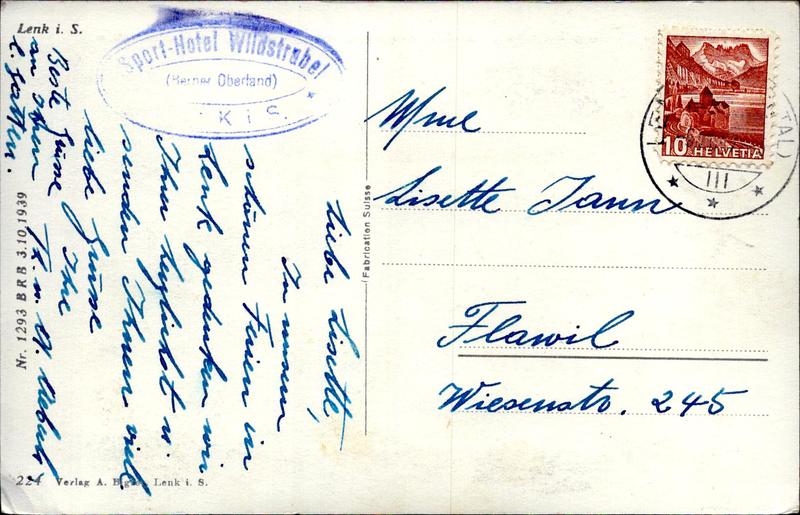 Lenk i. S.
Sport-Hotel Wildstrubel
(Berner Oberland)
Liebe Lisette,
In unsern
schönen Ferien in
Lenk gedenken wir
Ihrer herzlichst u.
senden Ihnen viele
liebe Grüsse
Ihre
Beste Grüsse
an Ihren
l. Gatten.
Nr. 1293 BRB 3.10.1939
224 Verlag A. Lenk i. S.
(Fabrication Suisse
Mme
Lisette Jann
Flawil
Wiesenstr. 245
10 HELVETIA
III